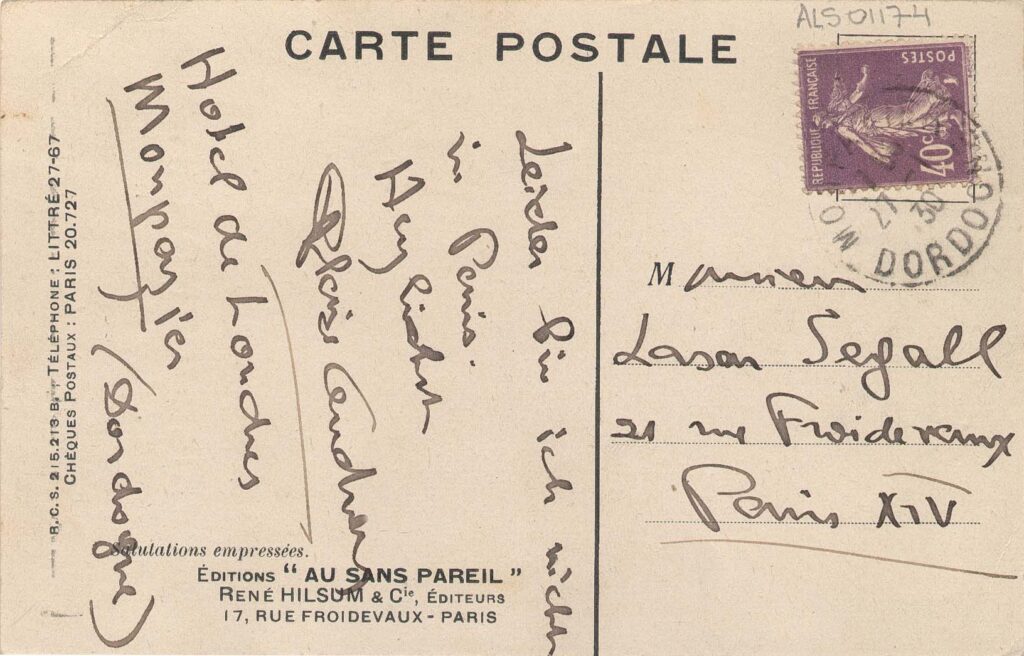 ALS 01174
CARTE POSTALE
RÉPUBLIQUE FRANÇAISE
POSTES
40c
27
30
DORDOGNE
Leider bin ich nicht
in Paris.
Herzlichst
Blaise Cendrars
Hotel de Londres
Monpazier
(Dordogne)
Monsieur
Lasar Segall
21 rue Froidevaux
Paris XIV
R.C.S. 215.213 B., TÉLÉPHONE : LITTRÉ 27-67
CHÈQUES POSTAUX : PARIS 20.727
Salutations empressées.
ÉDITIONS “ AU SANS PAREIL ”
RENÉ HILSUM & Cie, ÉDITEURS
17, RUE FROIDEVAUX - PARIS